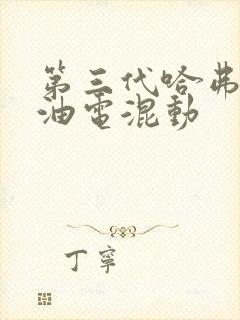 第三代哈弗
油电混动
丁寧